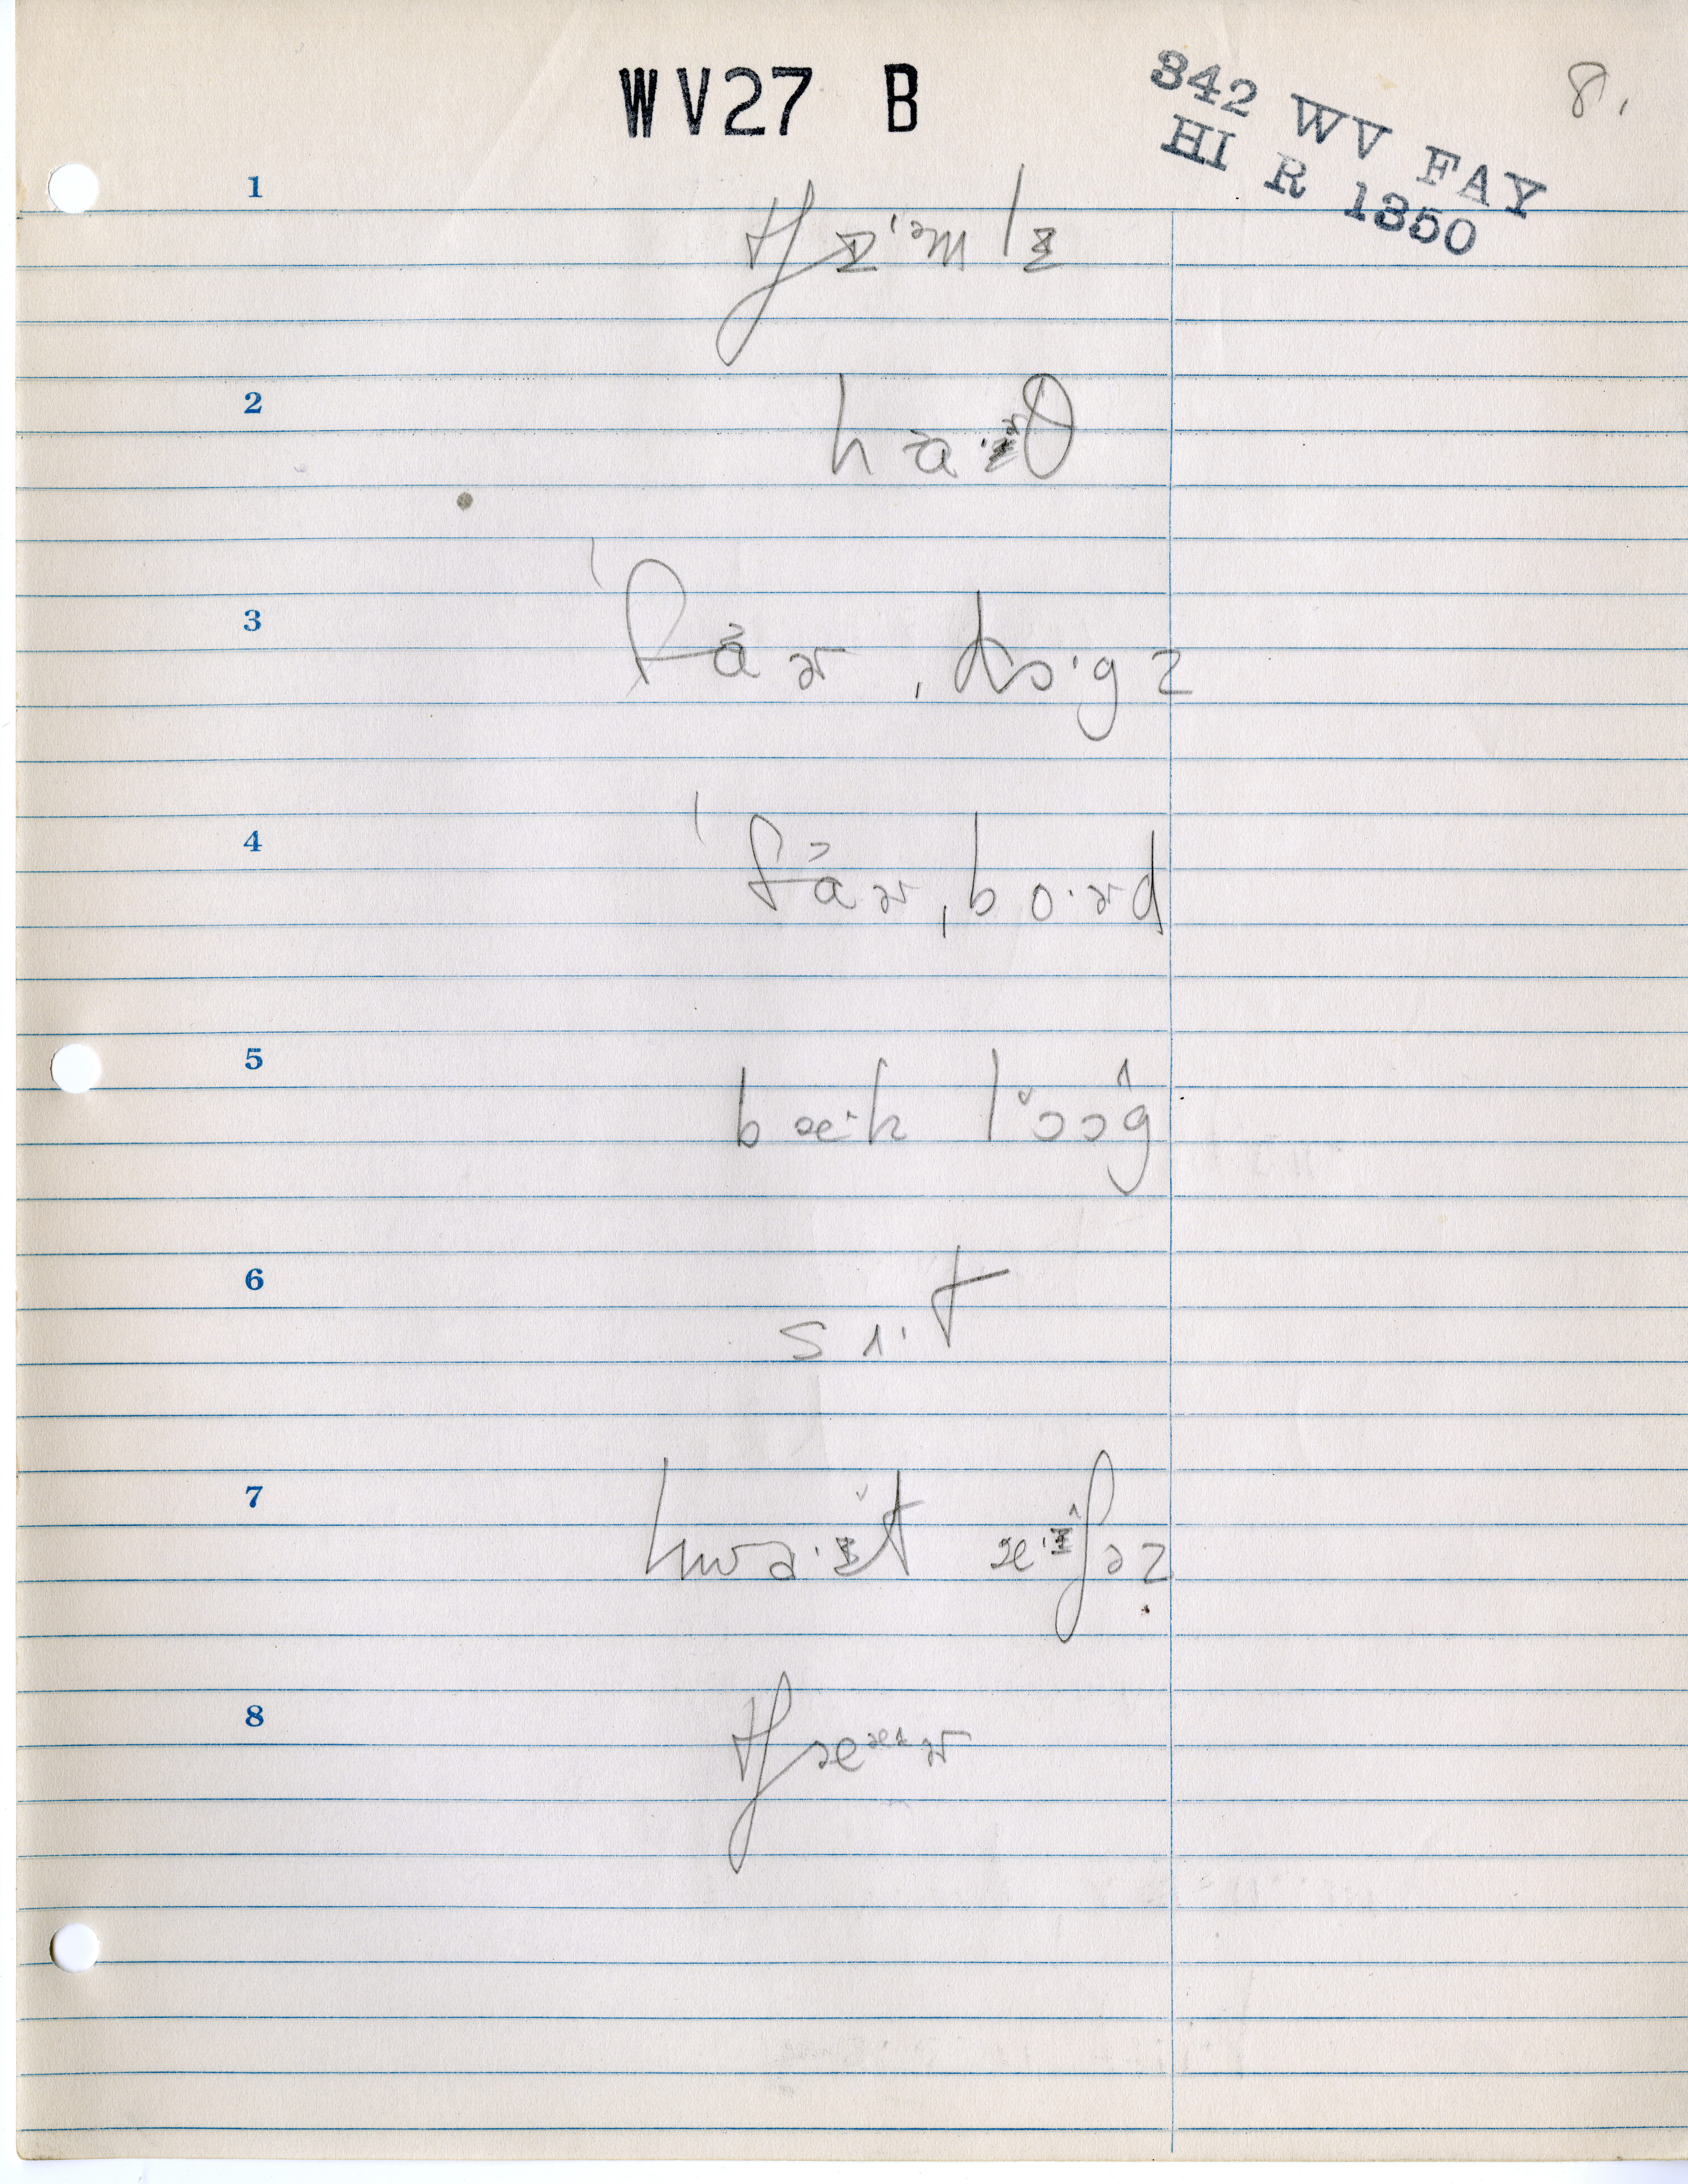 WV27 B
342 WV FAY
HI R 1350
8.
1
tʃɪᵊ'mlɪ
2
ha·ɚθ
3
ˈfaɚˌdɔ·gz
4
ˈfaɚˌbo·ɚd
5
bæ·k lɔɔg
6
sɪ·t
7
hwa·ɪt æ·ɪʃəz
8
tʃæᵊɚ